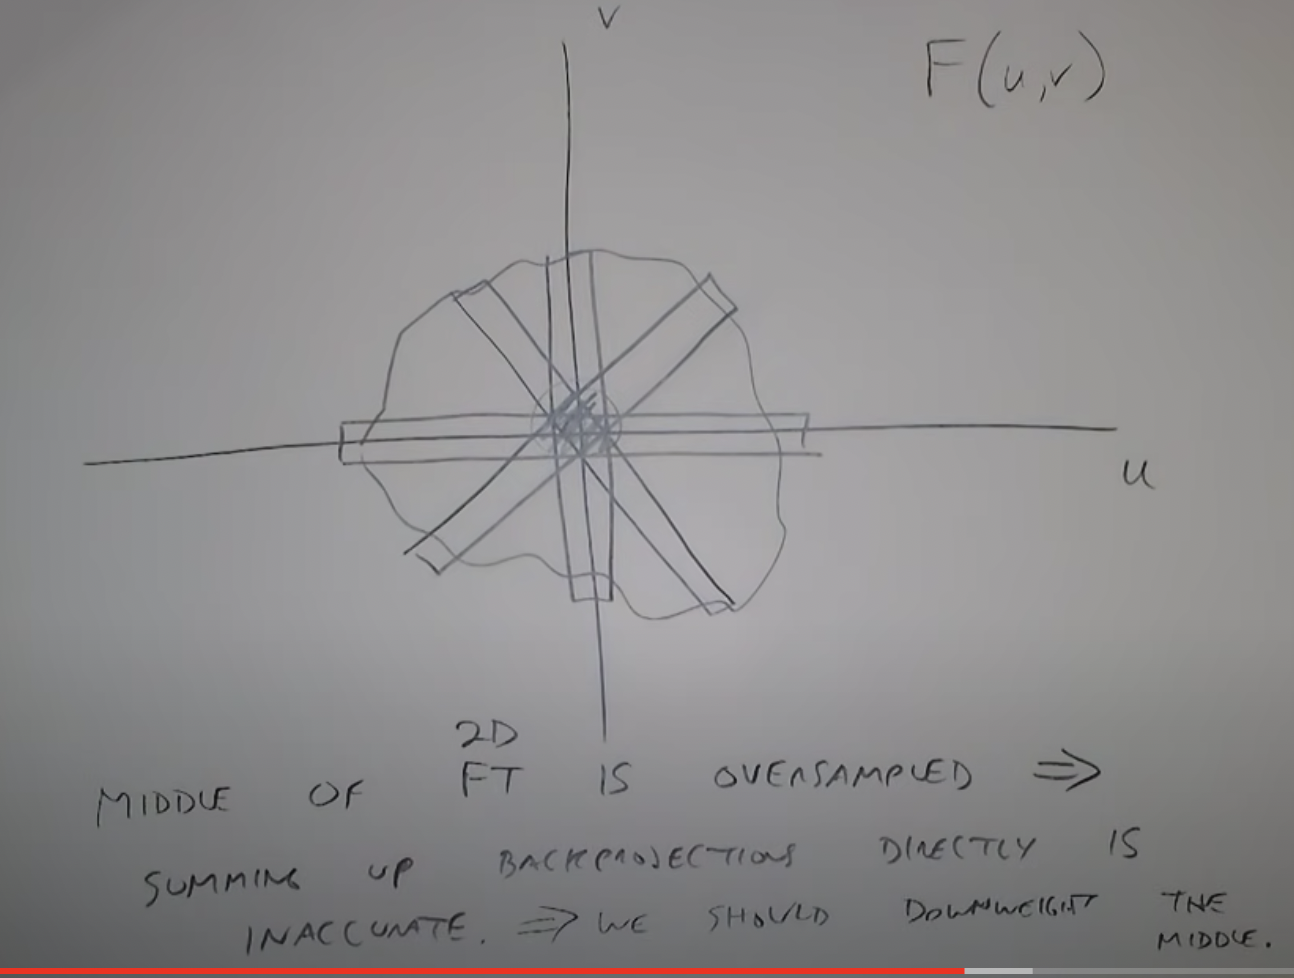 V
F(u,v)
u
2D
MIDDLE OF FT IS OVERSAMPLED ⇒
SUMMING UP BACKPROJECTIONS DIRECTLY IS
INACCURATE. ⇒ WE SHOULD DOWNWEIGHT THE
MIDDLE.